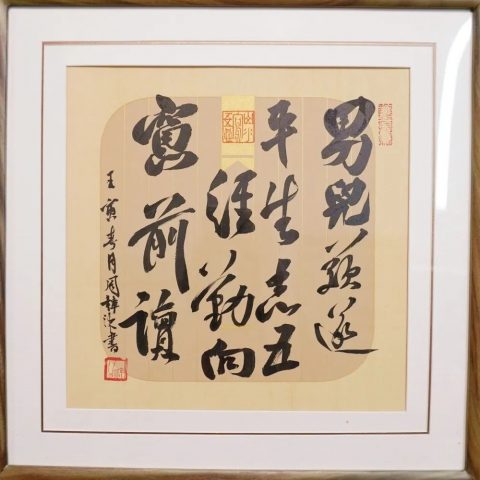 男兒欲遂
平生志五
經勤向
窗前讀
壬寅春月周梓洗書